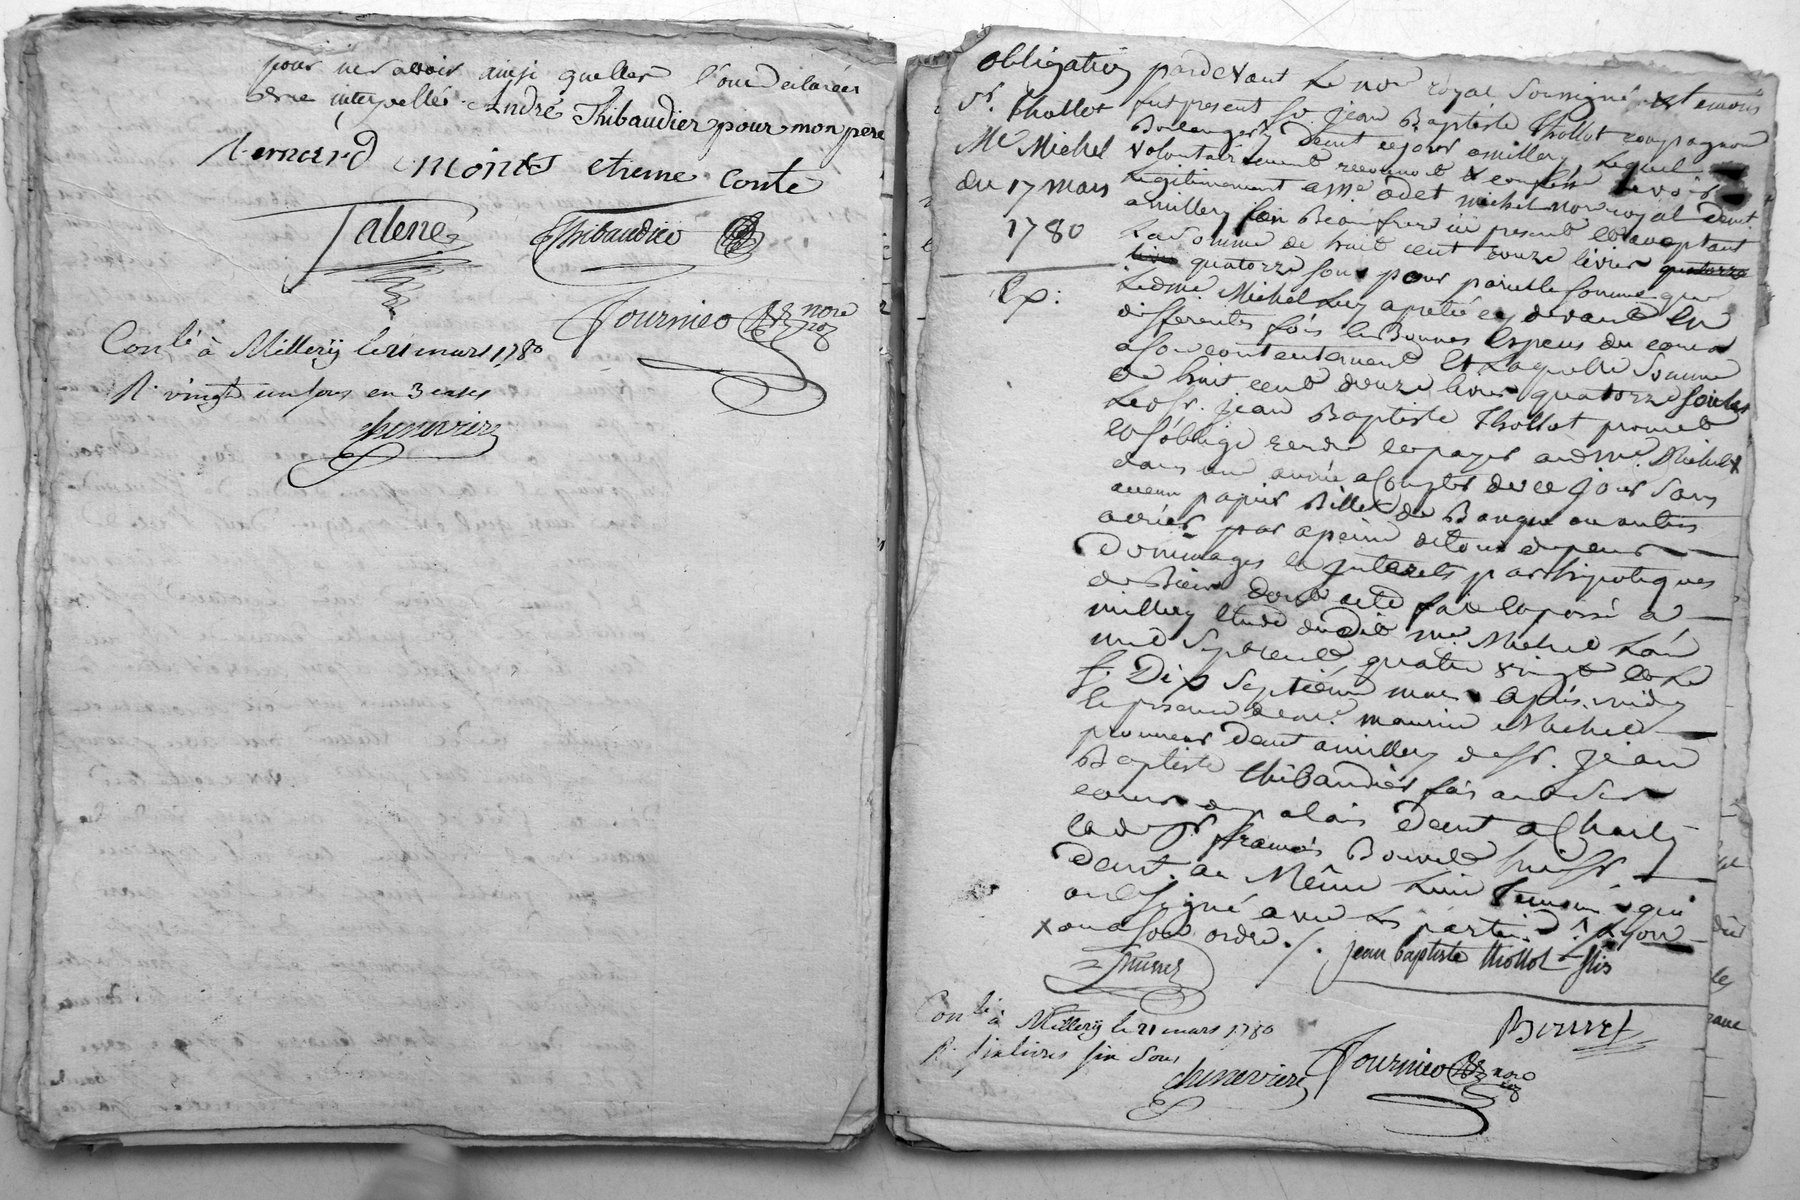 pour ne savoir ainsi quelles l'ont declaréer
de ce interpellés André Thibaudier pour mon pere
Bernard Monet etienne Conte
Talene Thibaudier
Fournier nore roy
Conlé à Millery le 21 mars 1780
R. vingt un sous en 3 cases
Chenevier
Obligation
Sr. Thollot
Me Michel
du 17 mars
1780
Ex:
pardevant Le nore royal soussigné & temoins
fut present Sr. Jean Baptiste Thollot compagnon
Boulanger demt ce jour amillery Lequel
volontairement reconnoit & confesse devoir
legitimement a Me odet michel nore royal demt
amillery son Beau frere ici present et acceptant
La somme de huit cent douze livres quatorze
livres quatorze sous pour pareille somme que
Ledme Michel Luy a pretée cy devant en
differentes fois en Bonnes Especes du cours
a son contentement Et Laquelle somme
de huit cent douze livres quatorze sous led
Ledsr. jean Baptiste Thollot promet
et soblige rendre et payer audme. Michel x
dans une année a Compter de ce jour sans
aucun papier Billet de Banque ou autres
acriés par apeine de tous depens
Dommages et jnterets par hipoteques
de Biens dont acte fait et passé a
millery Etude dudit me Michel Lan
mil Sept cent quatre vingt et Le
Dix Septieme mars après midy
En presence de me. maurice Michel
demt amillery de sr. Jean
Baptiste thibaudier fils
cour du palais demt a Charly
et de sr. francois Bouvet huissr
demt. au Même Lieu temoins qui
ont signé avec Les parties
x ou a son ordre ./.
jean baptiste thollot fils
Conlé à Millery le 21 mars 1780
R. six livres six sous
Chenevier
Bouvet
Fournier nore roy